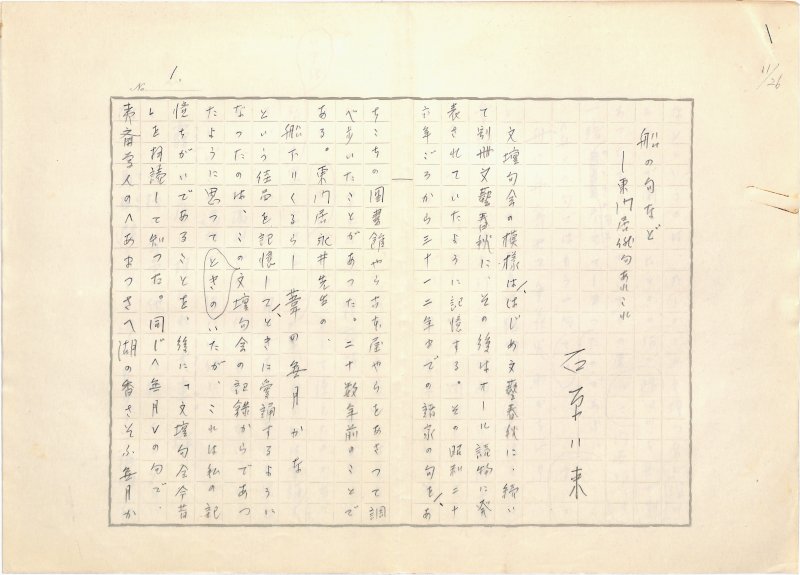 1
11/26
No. 1.
船の句など
ー東門居俳句あれこれ
石原八束
文壇句会の模様は、はじめ文藝春秋に、続い
て別冊文藝春秋に、その後はオール読物に発
表されていたように記憶する。その昭和二十
六年ごろから三十一二年までの諸家の句を、あ
ちこちの図書館やら古本屋やらをあさつて調
べ歩いたことがあつた。二十数年前のことで
ある。東門居永井先生の、
船下りくるらし葦の無月かな
という佳品を記憶して、ときに愛誦するように
なつたのは、この文壇句会の記録からであつ
たように思つてときのいたが、これは私の記
憶ちがいであることを、後に「文壇句会今昔
」を拝読して知つた。同じ＜無月＞の句で、
斎学人の＜あまつさへ湖の香さそふ無月か